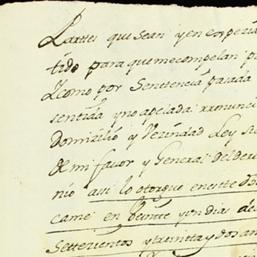 partes que sean y en especia
tido para que me compelan p
Como por Sentencia pasada
sentida y no apelada renuncio
Domicilio y Vezindad Ley su
de mi favor y General del dere
nio assi lo otorgue en este D
came en beinte y un dias de
Settesientos y treinta y dos an